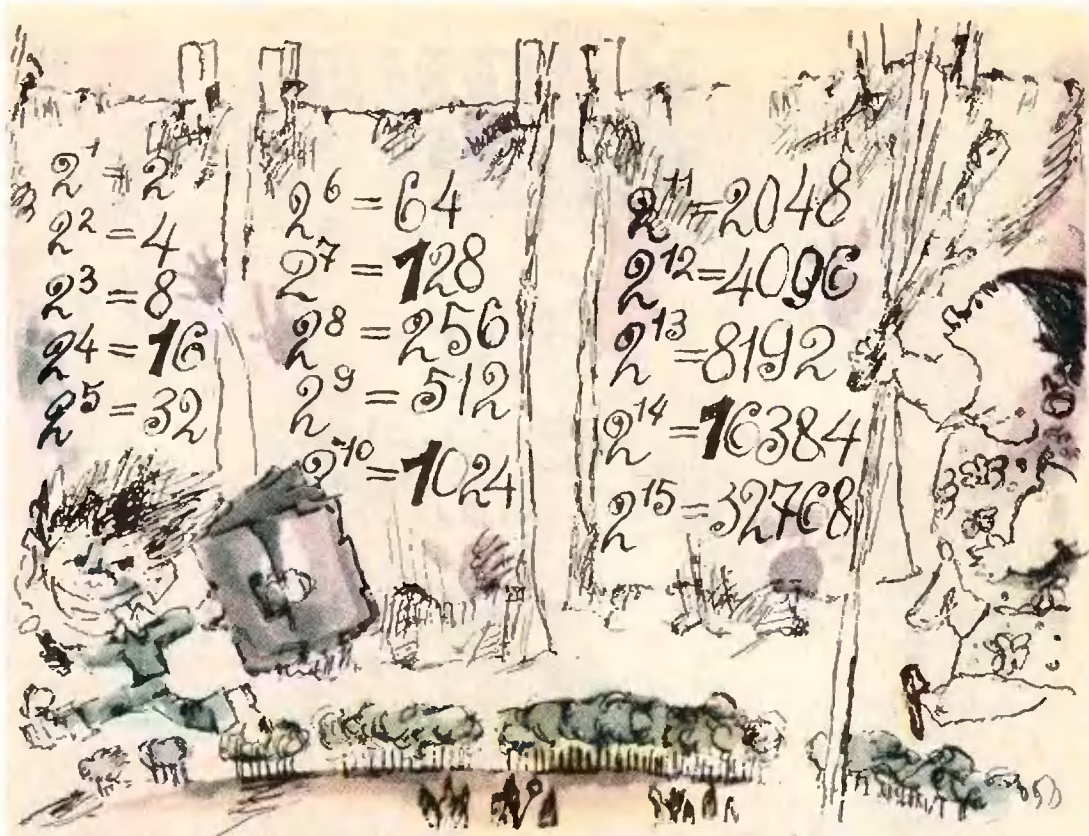 2¹ = 2
2² = 4
2³ = 8
2⁴ = 16
2⁵ = 32
2⁶ = 64
2⁷ = 128
2⁸ = 256
2⁹ = 512
2¹⁰ = 1024
2¹¹ = 2048
2¹² = 4096
2¹³ = 8192
2¹⁴ = 16384
2¹⁵ = 32768